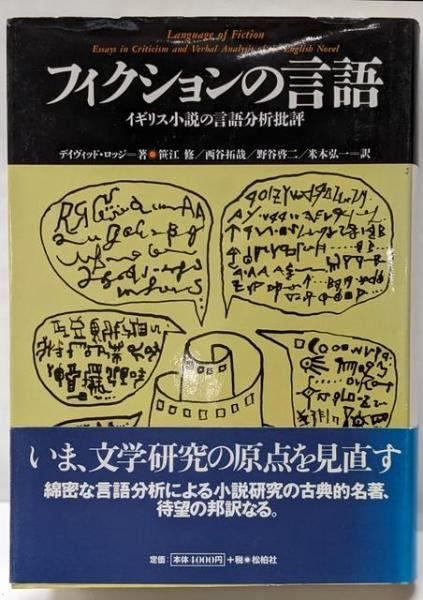 Language of Fiction
Essays in Criticism and Verbal Analysis of the English Novel
フィクションの言語
イギリス小説の言語分析批評
デイヴィッド・ロッジ=著●笹江 修/西谷拓哉/野谷啓二/米本弘一=訳
いま、文学研究の原点を見直す
綿密な言語分析による小説研究の古典的名著、
待望の邦訳なる。
定価:本体4000円+税●松柏社